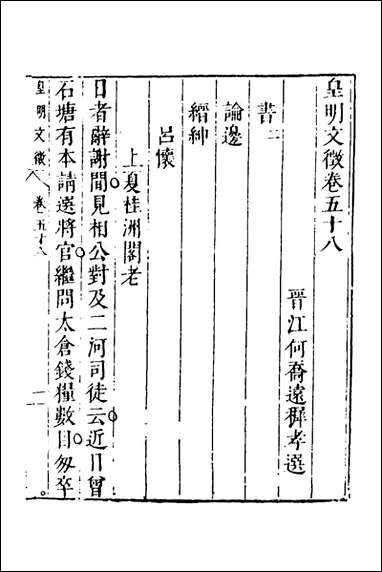 皇明文徵卷五十八
晉江何喬遠穉孝選
書二
論邊
縉紳
呂懷
上夏桂洲閣老
日者辭謝間見相公對及二河司徒云近日曾
石塘有本請選將官繼問太倉錢糧數目匆卒
皇明文徵
卷五十八
一